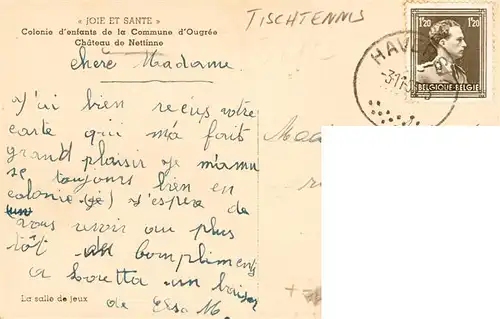 « JOIE ET SANTE »
Colonie d'enfants de la Commune d'Ougrée
Château de Nettinne
TISCHTENNIS
1F20 1F20
BELGIQUE-BELGIE
HAVE
chere Madame
J'ai bien reçus votre
carte qui m'a fait
grand plaisir je m'amu
se toujours bien en
colonie (je) j'espère de
vous revoir au plus
tôt un compliments
a Loretta un baiser
de Elsa M.
Mad
La salle de jeux